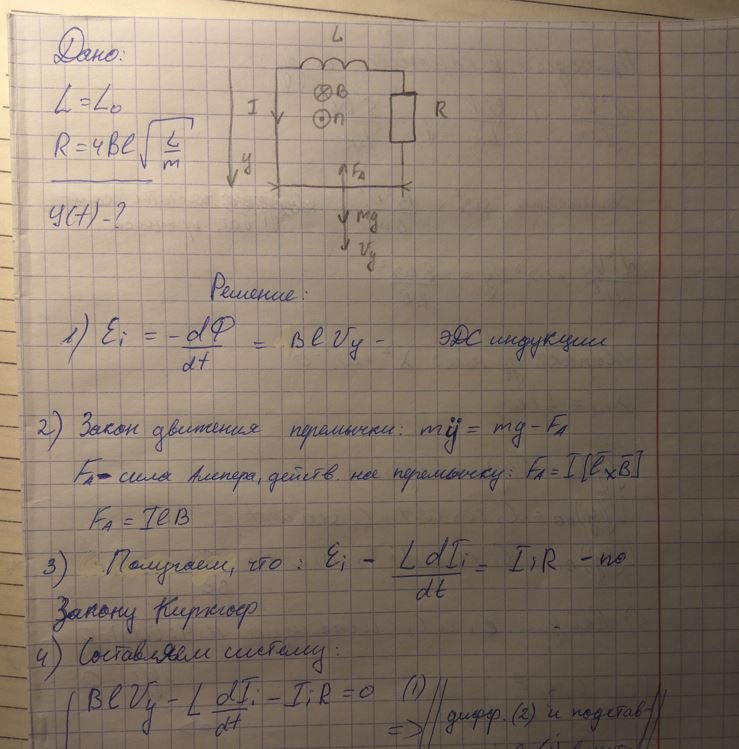 Дано:
L = L₀
R = 4Bl√(L/m)
y(t) - ?
L
I
⊗ B
⊙ n
R
y
F_A
mg
V_y
Решение:
1) Ɛi = -dФ/dt = BlVy - ЭДС индукции
2) Закон движения перемычки: mÿ = mg - F_A
F_A - сила Ампера, действ. на перемычку: F_A = I[l̄ × B̄]
F_A = IlB
3) Получаем, что: Ɛi - L dIi/dt = IiR - по
Закону Киркгоф
4) Составляем систему:
{ BlVy - L dIi/dt - IiR = 0 (1)
=> || дифф. (2) и подстав- ||